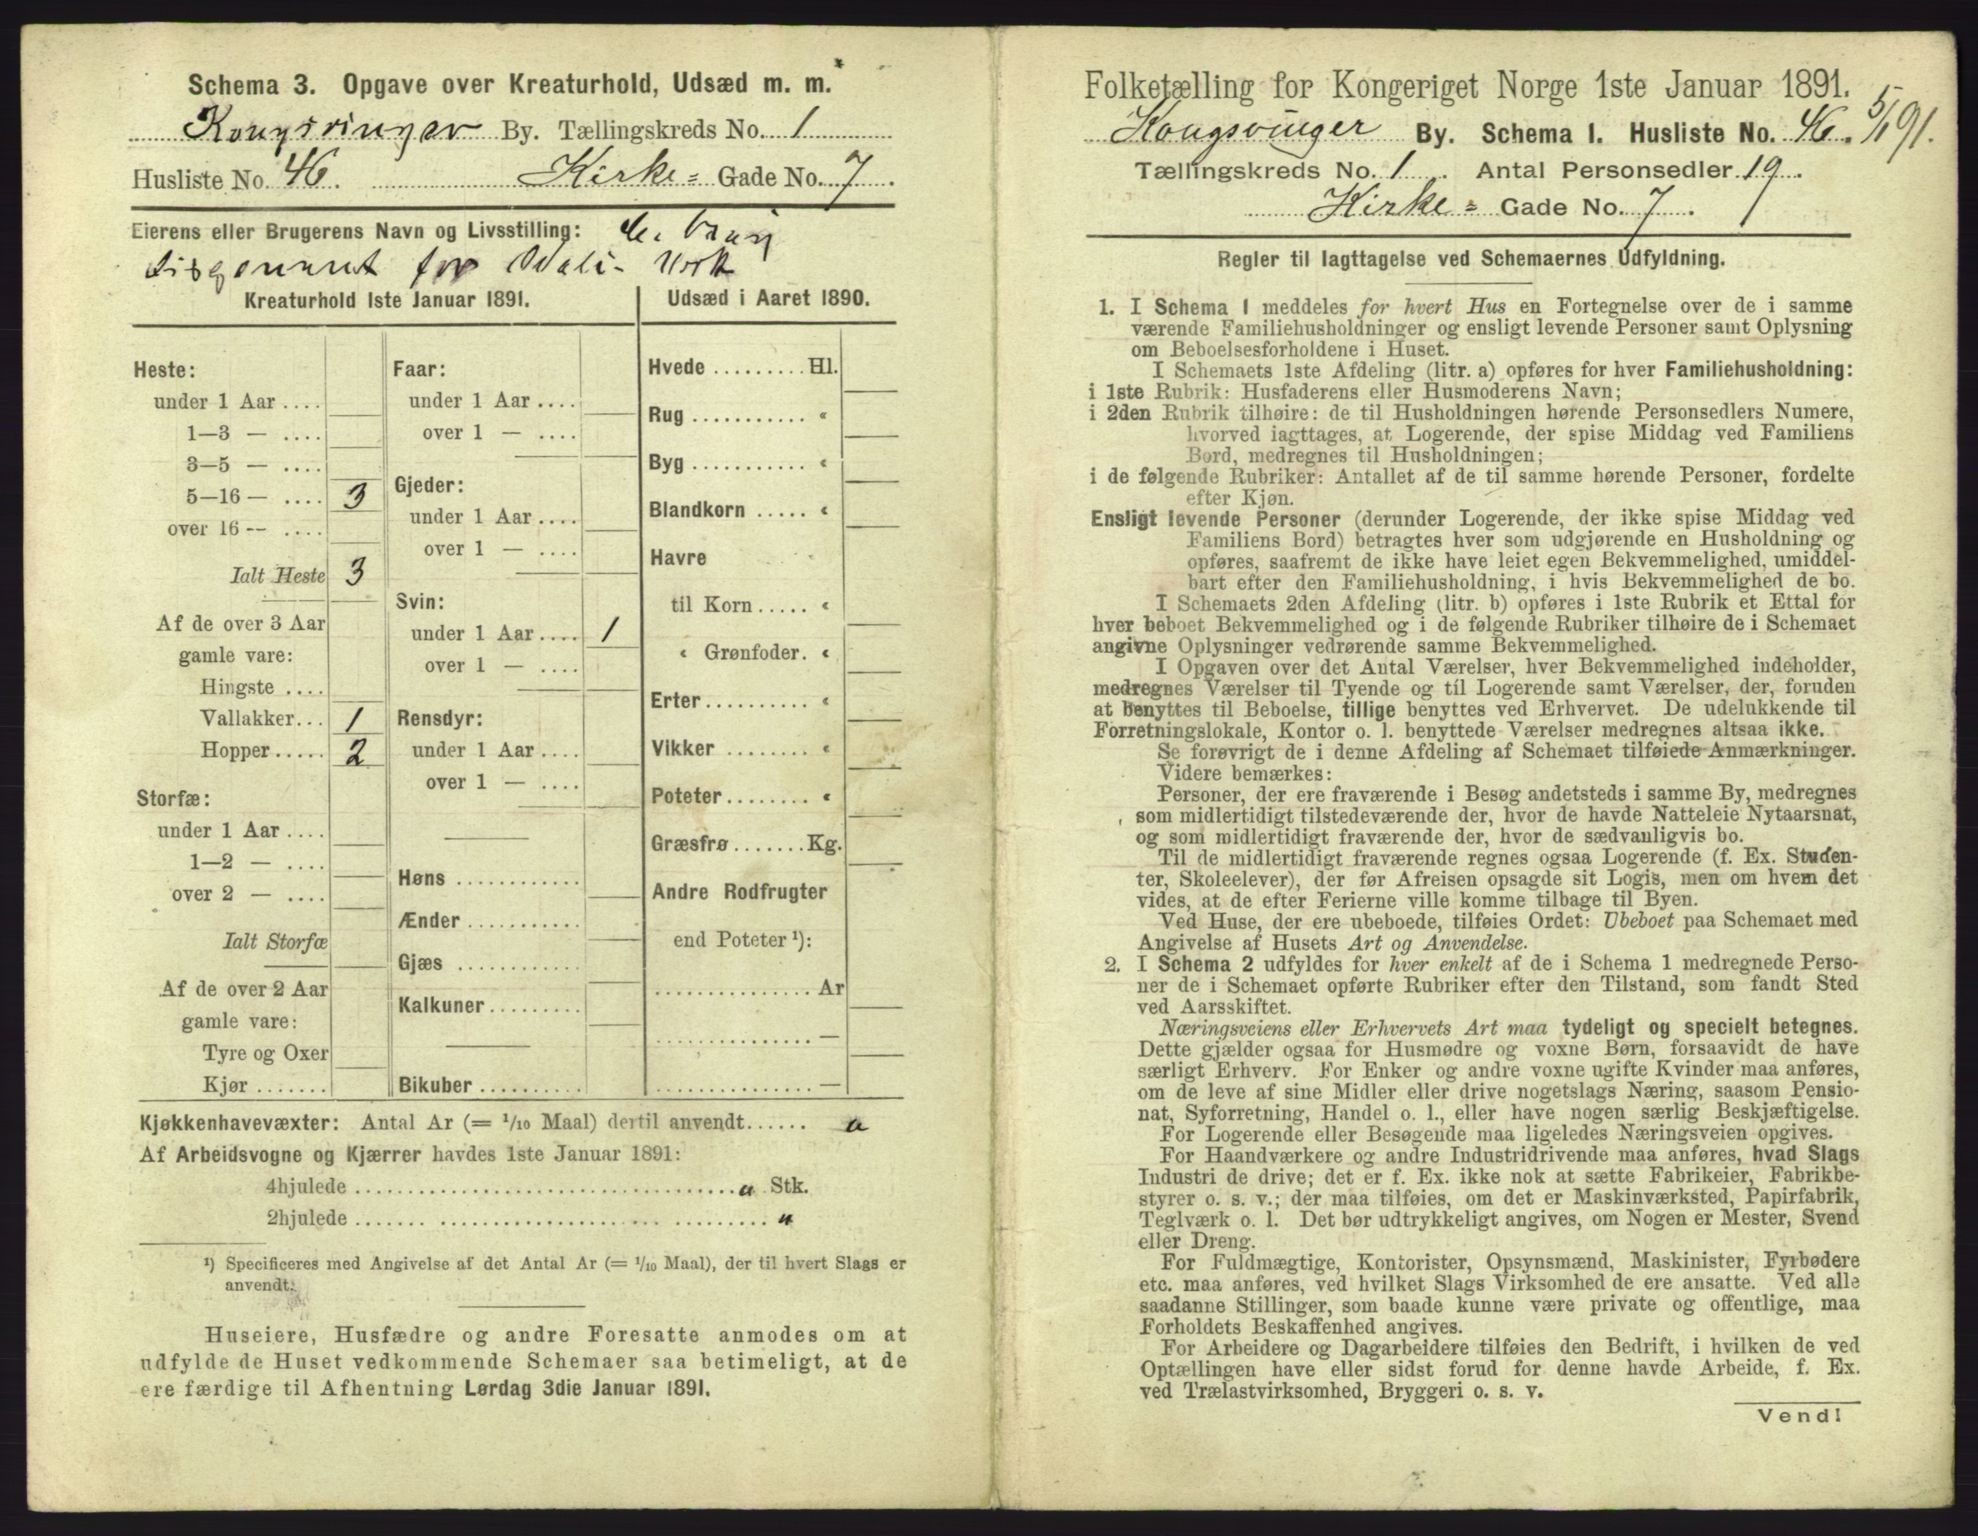 Schema 3. Opgave over Kreaturhold, Udsæd m. m.
Kongsvinger By. Tællingskreds No. 1
Husliste No. 46. Kirke= Gade No. 7.
Eierens eller Brugerens Navn og Livsstilling:
for
Kreaturhold 1ste Januar 1891.
Heste:
under 1 Aar ....
1—3 — ....
3—5 — ....
5—16 — .... 3
over 16 -- ....
Ialt Heste 3
Af de over 3 Aar
gamle vare:
Hingste ....
Vallakker... 1
Hopper..... 2
Storfæ:
under 1 Aar ....
1—2 — ....
over 2 — ....
Ialt Storfæ
Af de over 2 Aar
gamle vare:
Tyre og Oxer
Kjør .......
Faar:
under 1 Aar ....
over 1 — ....
Gjeder:
under 1 Aar ....
over 1 — ....
Svin:
under 1 Aar .... 1
over 1 — ....
Rensdyr:
under 1 Aar ....
over 1 — ....
Høns ............
Ænder ...........
Gjæs ............
Kalkuner.........
Bikuber ..........
Udsæd i Aaret 1890.
Hvede ......... Hl.
Rug ........... «
Byg ........... «
Blandkorn ..... «
Havre
til Korn..... «
« Grønfoder. «
Erter.......... «
Vikker ........ «
Poteter........ «
Græsfrø ....... Kg.
Andre Rodfrugter
end Poteter ¹):
............... Ar
............... —
............... —
Kjøkkenhavevæxter: Antal Ar (= ¹/₁₀ Maal) dertil anvendt...... "
Af Arbeidsvogne og Kjærrer havdes 1ste Januar 1891:
4hjulede .................................... " Stk.
2hjulede ....... .............................. "
¹) Specificeres med Angivelse af det Antal Ar (= ¹/₁₀ Maal), der til hvert Slags er
anvendt.
Huseiere, Husfædre og andre Foresatte anmodes om at
udfylde de Huset vedkommende Schemaer saa betimeligt, at de
ere færdige til Afhentning Lørdag 3die Januar 1891.
Folketælling for Kongeriget Norge 1ste Januar 1891.
5/1 91.
Kongsvinger By. Schema I. Husliste No. 46.
Tællingskreds No. 1. Antal Personsedler 19.
Kirke= Gade No. 7.
Regler til Iagttagelse ved Schemaernes Udfyldning.
1. I Schema 1 meddeles for hvert Hus en Fortegnelse over de i samme
værende Familiehusholdninger og ensligt levende Personer samt Oplysning
om Beboelsesforholdene i Huset.
I Schemaets 1ste Afdeling (litr. a) opføres for hver Familiehusholdning:
i 1ste Rubrik: Husfaderens eller Husmoderens Navn;
i 2den Rubrik tilhøire: de til Husholdningen hørende Personsedlers Numere,
hvorved iagttages, at Logerende, der spise Middag ved Familiens
Bord, medregnes til Husholdningen;
i de følgende Rubriker: Antallet af de til samme hørende Personer, fordelte
efter Kjøn.
Ensligt levende Personer (derunder Logerende, der ikke spise Middag ved
Familiens Bord) betragtes hver som udgjørende en Husholdning og
opføres, saafremt de ikke have leiet egen Bekvemmelighed, umiddel-
bart efter den Familiehusholdning, i hvis Bekvemmelighed de bo.
I Schemaets 2den Afdeling (litr. b) opføres i 1ste Rubrik et Ettal for
hver beboet Bekvemmelighed og i de følgende Rubriker tilhøire de i Schemaet
angivne Oplysninger vedrørende samme Bekvemmelighed.
I Opgaven over det Antal Værelser, hver Bekvemmelighed indeholder,
medregnes Værelser til Tyende og til Logerende samt Værelser, der, foruden
at benyttes til Beboelse, tillige benyttes ved Erhvervet. De udelukkende til
Forretningslokale, Kontor o. l. benyttede Værelser medregnes altsaa ikke.
Se forøvrigt de i denne Afdeling af Schemaet tilføiede Anmærkninger.
Videre bemærkes:
Personer, der ere fraværende i Besøg andetsteds i samme By, medregnes
som midlertidigt tilstedeværende der, hvor de havde Natteleie Nytaarsnat,
og som midlertidigt fraværende der, hvor de sædvanligvis bo.
Til de midlertidigt fraværende regnes ogsaa Logerende (f. Ex. Studen-
ter, Skoleelever), der før Afreisen opsagde sit Logis, men om hvem det
vides, at de efter Ferierne ville komme tilbage til Byen.
Ved Huse, der ere ubeboede, tilføies Ordet: Ubeboet paa Schemaet med
Angivelse af Husets Art og Anvendelse.
2. I Schema 2 udfyldes for hver enkelt af de i Schema 1 medregnede Perso-
ner de i Schemaet opførte Rubriker efter den Tilstand, som fandt Sted
ved Aarsskiftet.
Næringsveiens eller Erhvervets Art maa tydeligt og specielt betegnes.
Dette gjælder ogsaa for Husmødre og voxne Børn, forsaavidt de have
særligt Erhverv. For Enker og andre voxne ugifte Kvinder maa anføres,
om de leve af sine Midler eller drive nogetslags Næring, saasom Pensio-
nat, Syforretning, Handel o. l., eller have nogen særlig Beskjæftigelse.
For Logerende eller Besøgende maa ligeledes Næringsveien opgives.
For Haandværkere og andre Industridrivende maa anføres, hvad Slags
Industri de drive; det er f. Ex. ikke nok at sætte Fabrikeier, Fabrikbe-
styrer o. s. v.; der maa tilføies, om det er Maskinværksted, Papirfabrik,
Teglværk o. l. Det bør udtrykkeligt angives, om Nogen er Mester, Svend
eller Dreng.
For Fuldmægtige, Kontorister, Opsynsmænd, Maskinister, Fyrbødere
etc. maa anføres, ved hvilket Slags Virksomhed de ere ansatte. Ved alle
saadanne Stillinger, som baade kunne være private og offentlige, maa
Forholdets Beskaffenhed angives.
For Arbeidere og Dagarbeidere tilføies den Bedrift, i hvilken de ved
Optællingen have eller sidst forud for denne havde Arbeide, f. Ex.
ved Trælastvirksomhed, Bryggeri o. s. v.
Vend!